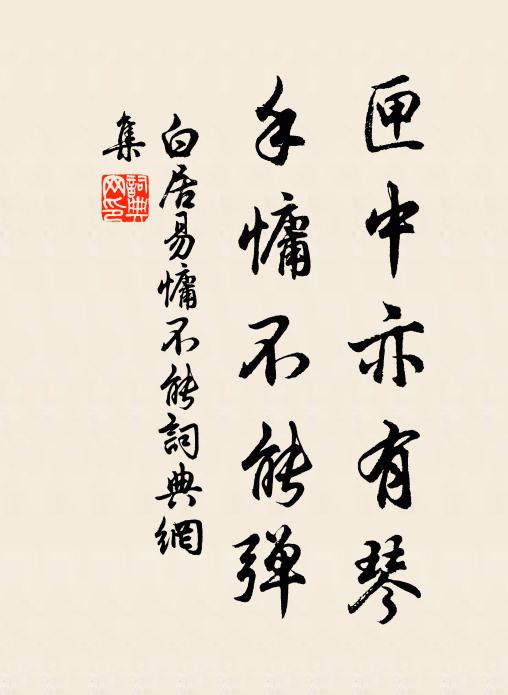 匣中亦有琴
手慵不能彈
白居易慵不能詞典網
集
詞典
网印